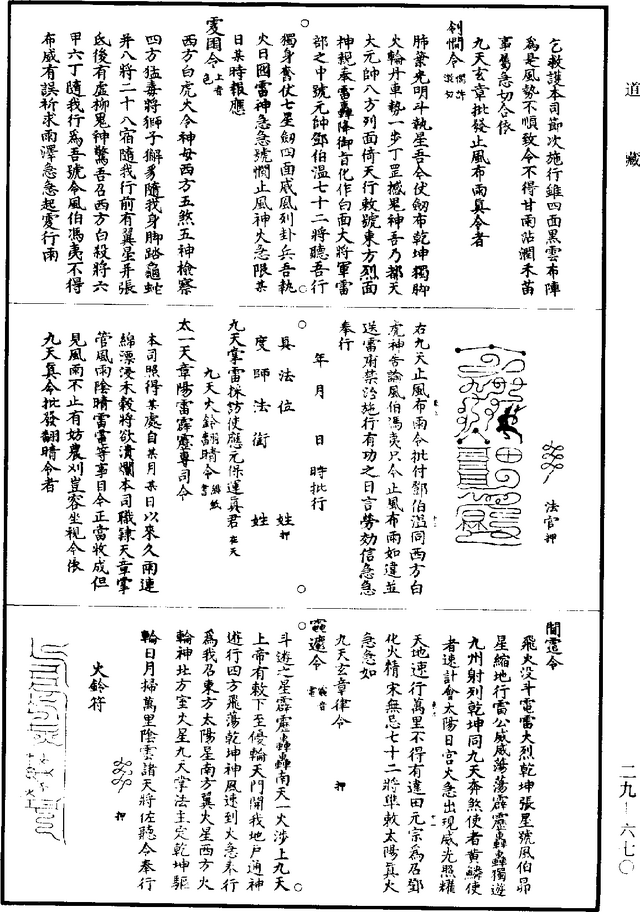 道藏
乞救護本司節次施行雖四面黑雲布陣
為是風勢不順致令不得甘雨沾潤禾苗
事屬急切合依
九天玄章批發止風布雨真令者
肺葉光明斗執星吾令仗劒布乾坤獨脚
火輪丹車勢一步丁罡撼鬼神吾乃都天
大元帥八方列面倚天行敕號東方烈面
神親奉雷轟降御旨化作白面大將軍雷
部之中號元帥鄧伯溫七十二將聽吾行
獨身奮仗七星劒四面威風列卦兵吾執
火日國雷神急急號憫止風神火急限某
日某時報應
憂困令
西方白虎火令神母西方五煞五神檢察
四方猛毒將獅子獬豸隨我身脚踏龜蛇
并八將二十八宿隨我行前有翼星并張
氐後有虛柳鬼神驚吾召西方白殺將六
甲六丁隨我行為吾號令風伯馮夷不得
布威有誤祈求雨澤急急起憂行雨
法官押
右九天止風布雨令批付鄧伯溫同西方白
虎神吾諭風伯馮夷只令止風布雨如違並
送雷府禁治施行有功之日言勞効信急急
奉行
年月日時批行
具法位姓押
度師法銜姓
九天掌雷採訪使應元保運真君在天
九天火鈴翻晴令
太一天章陽雷霹靂專司令
本司照得某處自某月某日以來久雨連
綿漂浸禾榖將欲潰爛本司職隷天章掌
管風雨陰晴雷電等事目今正當收成但
見風雨不止有妨農刈豈容坐視令依
九天真令批發翻晴令者
飛火沒斗電雷大烈乾坤張星號風伯昴
星縮地行雷公威威蕩蕩霹靂轟轟獨遊
九州射列乾坤同九天奔煞使者黃鱗使
者速計會太陽日宮火急出現威光照耀
天地速行萬里不得有違田元宗為召鄧
化火精宋無忌七十二將準敕太陽真火
急急如
九天玄章律令押
斗遊之星霹靂轟轟南天一火涉上九天
上帝有敕下至優輪天門開我地戶通神
遊行四方飛蕩乾坤神風速到火急奉行
為我召東方太陽星南方翼火星西方火
輪神北方室火星九天掌法主定乾坤驅
輪日月掃萬里陰雲諸天將佐聽令奉行
押
火鈴符
二九–六七〇